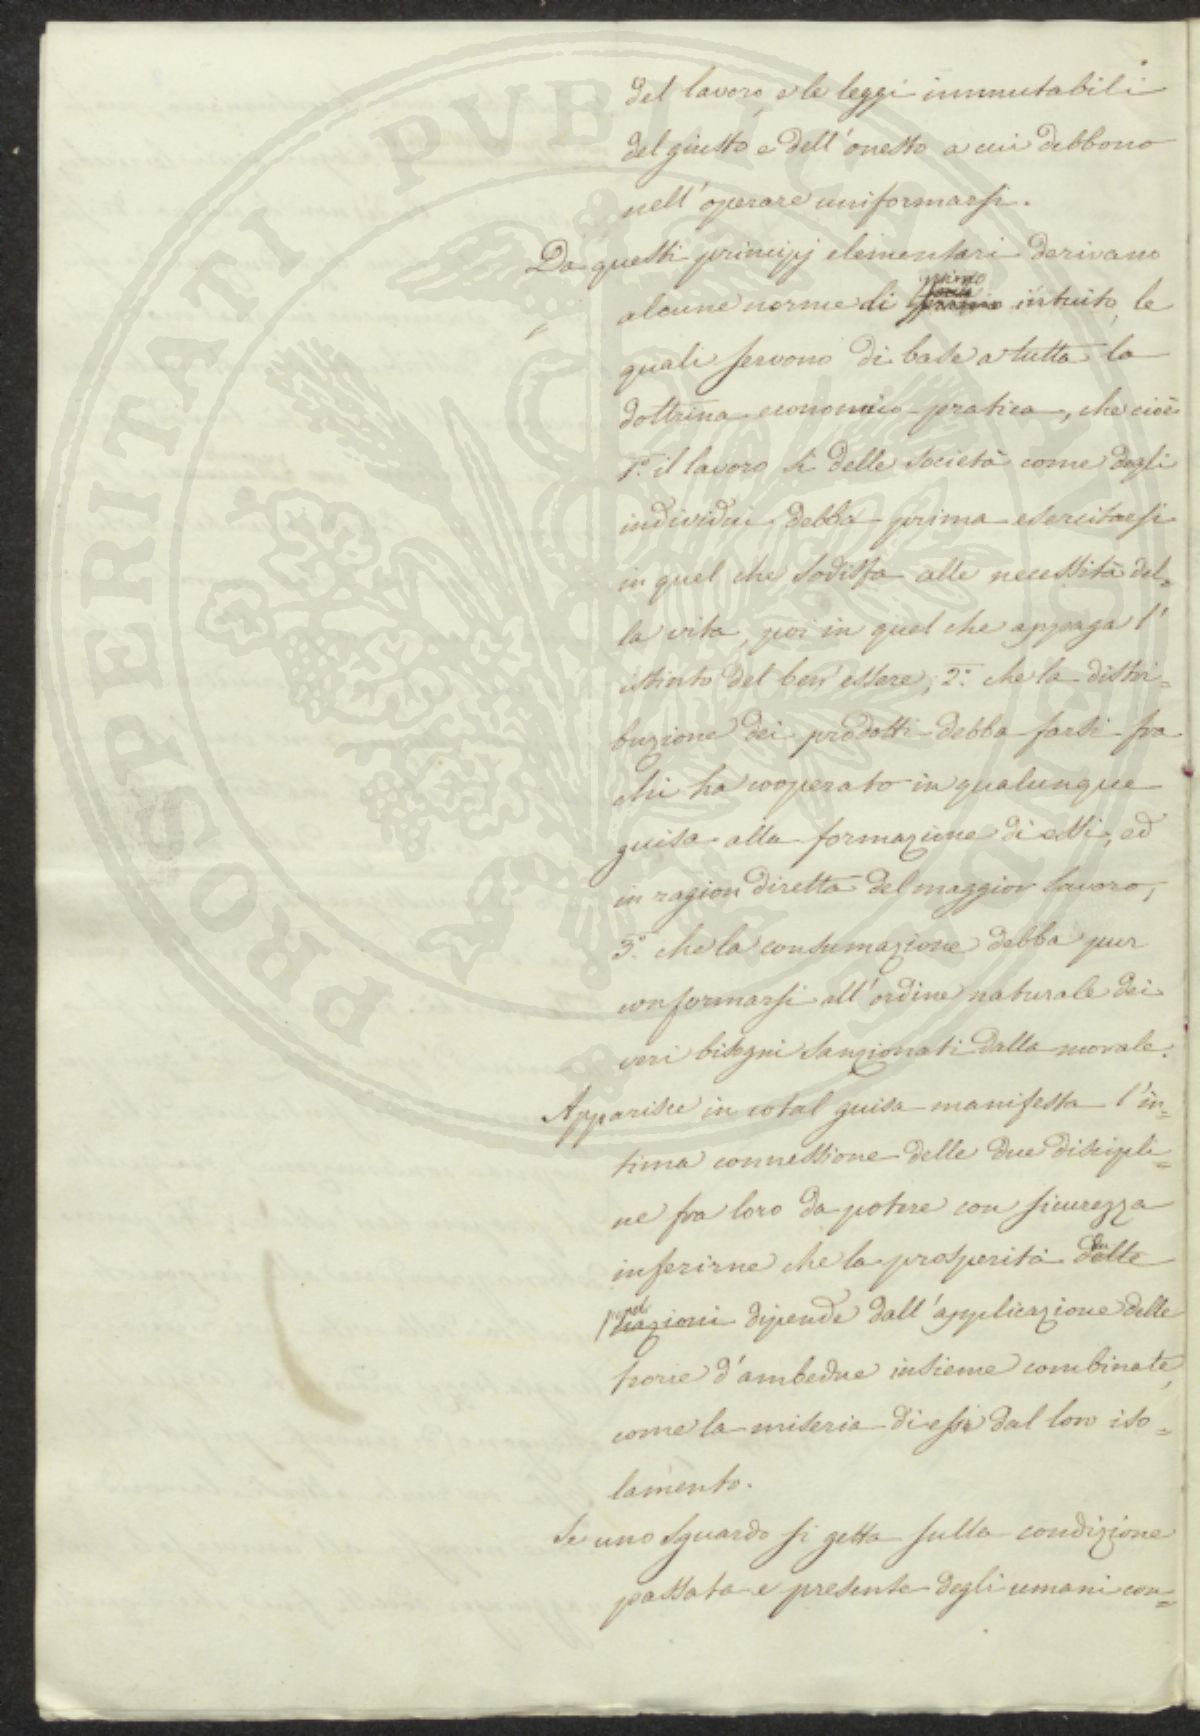 del lavoro, e le leggi immutabili
del giusto e dell'onesto a cui debbono
nell'operare uniformarsi.
Da questi principj elementari derivano
primo
alcune norme di intuito, le
quali servono di base a tutta la
dottrina economico-pratica, che cioè
1.° il lavoro sì delle società come degli
individui debba prima esercitarsi
in quel che sodisfa alle necessità del=
la vita, poi in quel che appaga l'
istinto del ben'essere; 2.° che la distri=
buzione dei prodotti debba farsi fra
chi ha cooperato in qualunque
guisa alla formazione di essi, ed
in ragion diretta del maggior lavoro;
3.° che la consumazione debba pur
conformarsi all'ordine naturale dei
veri bisogni sanzionati dalla morale.
Apparisce in cotal guisa manifesta l'in=
tima connessione delle due discipli=
ne fra loro da potere con sicurezza
inferirne che la prosperità delle
nazioni dipende dall'applicazione delle
teorie d'ambedue insieme combinate,
come la miseria di essi dal loro iso=
lamento.
Se uno sguardo si getta sulla condizione
passata e presente degli umani con=
PROSPERITATI PUBLICAE